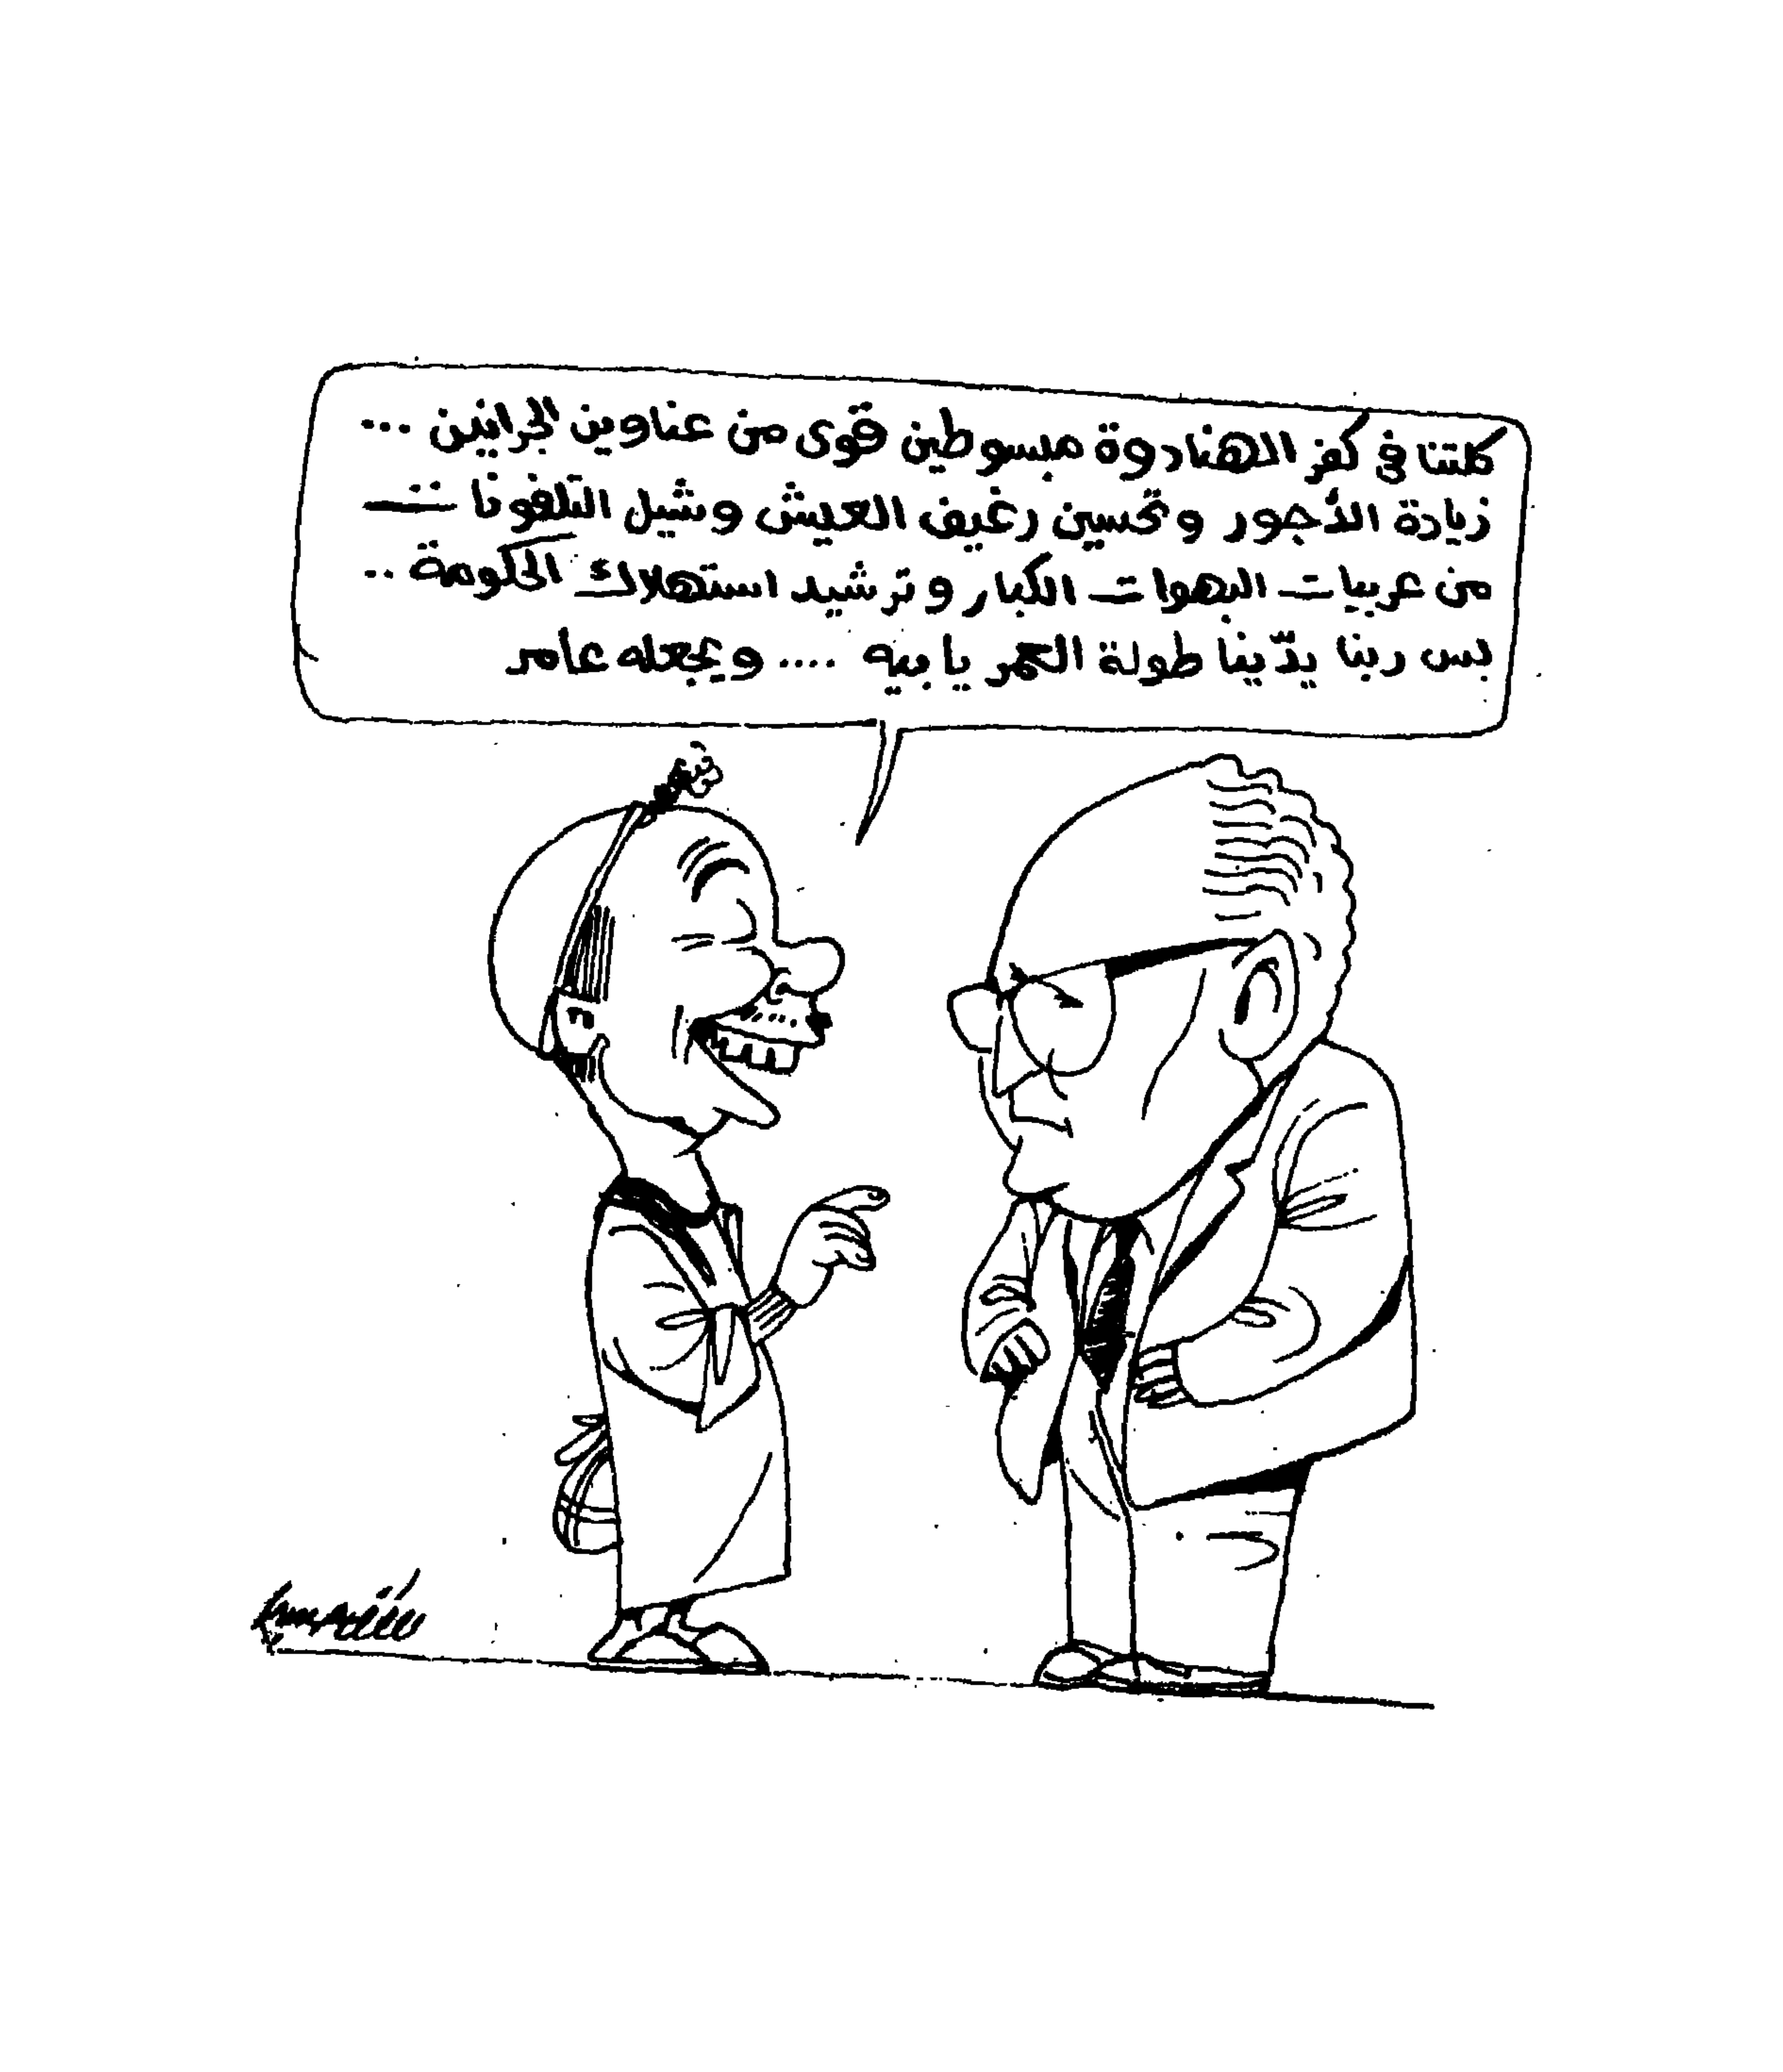 كلتنا فى كفر الهنادوة مبسوطين قوى من عناوين الجرانين ...
زيادة الأجور وتحسين رغيف العيش وشيل التلفونات
من عربيات البهوات الكبار وترشيد استهلاك الحكومة ..
بس ربنا يدّينا طولة العمر يا بيه .... ويجعله عامر